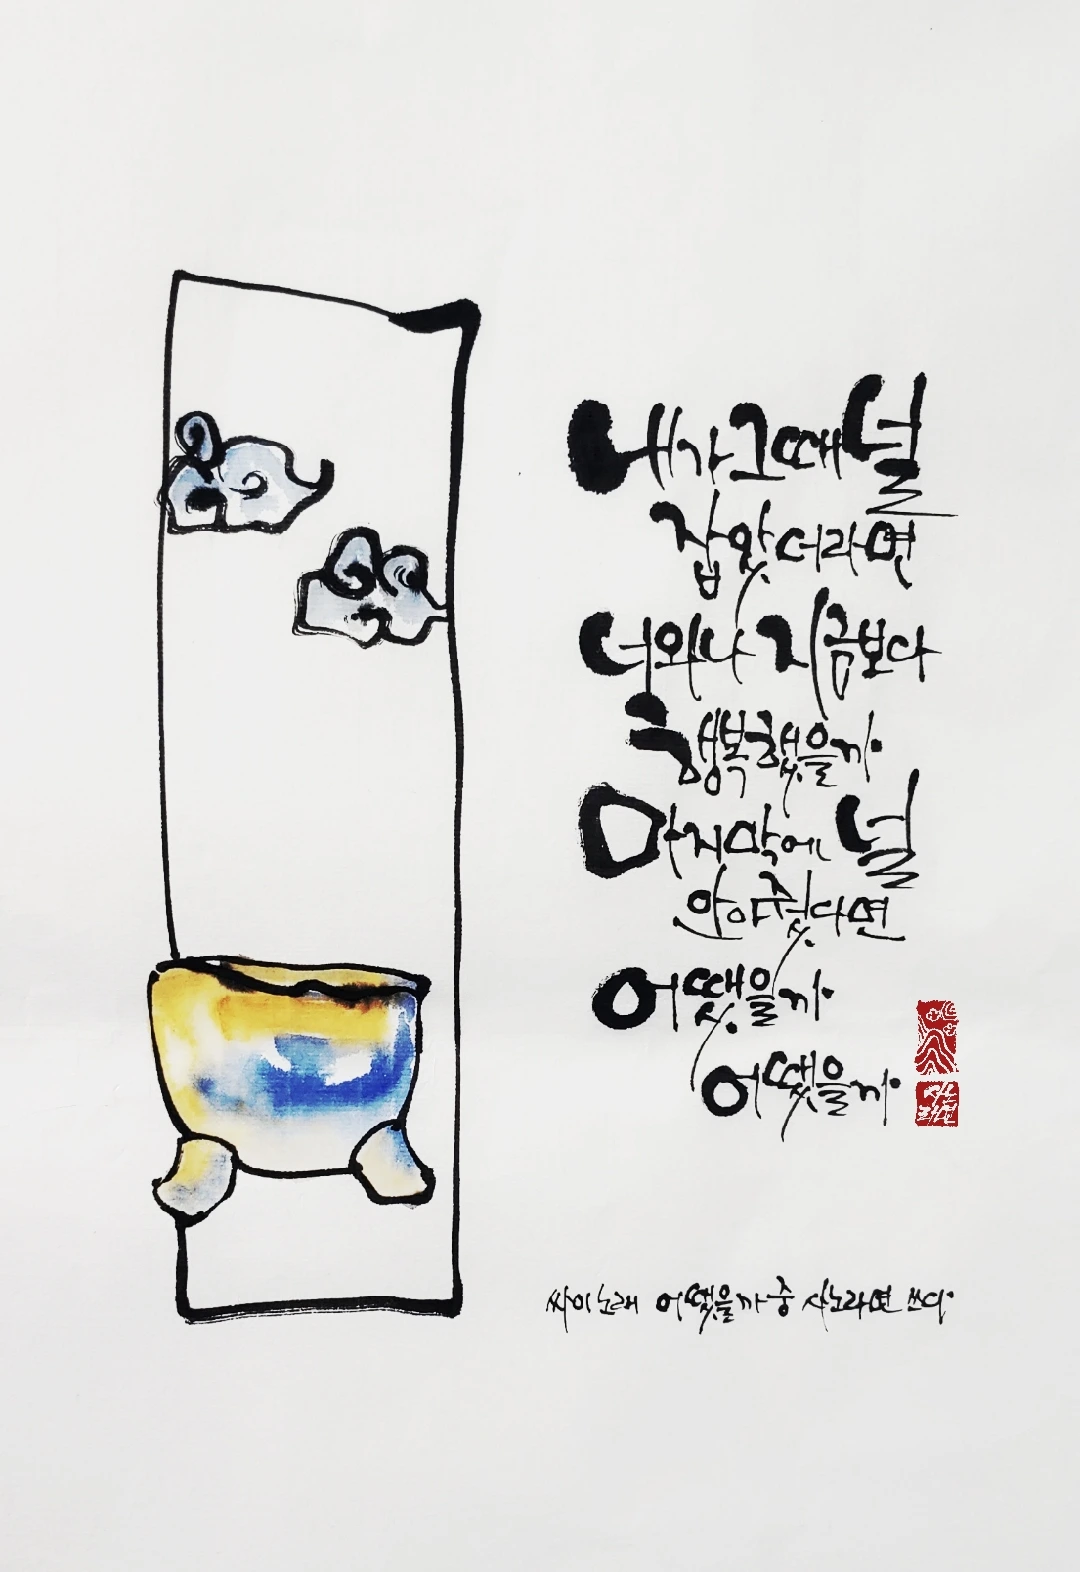 내가 그때 널
잡았더라면
너와 나 지금보다
행복했을까
마지막에 널
안아줬다면
어땠을까
어땠을까
싸이 노래 어땠을까 중 사노라면 쓰다